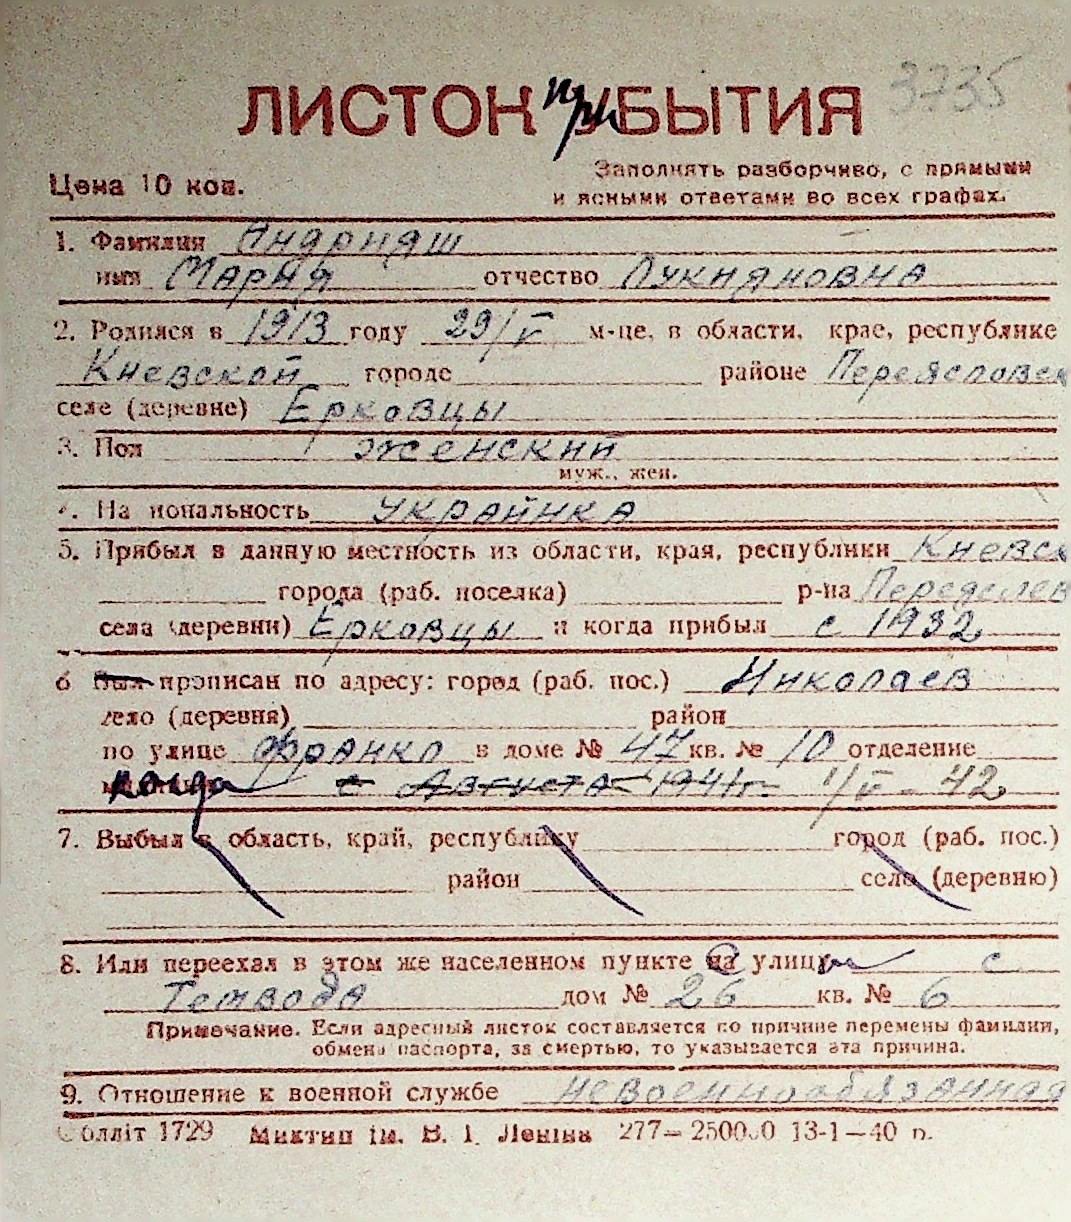 3735
ЛИСТОК при УБЫТИЯ
Цена 10 коп.
Заполнять разборчиво, с прямыми
и ясными ответами во всех графах.
1. Фамилия Андрияш
имя Мария отчество Лукияновна
2. Родился в 1913 году 29/V м-це, в области, крае, республике
Киевской городе районе Переясловск
селе (деревне) Ерковцы
3. Пол женский
муж., жен.
4. Национальность Украинка
5. Прибыл в данную местность из области, края, республики Киевск
города (раб. поселка) р-на Переяслев
села (деревни) Ерковцы и когда прибыл с 1932
6 Был прописан по адресу: город (раб. пос.) Николаев
село (деревня) район
по улице Франко в доме № 47 кв. № 10 отделение
когда с Августа 1941г. 1/V - 42
7. Выбыл в область, край, республику город (раб. пос.)
район село (деревню)
8. Или переехал в этом же населенном пункте на улицу с
Темвода дом № 26 кв. № 6
Примечание. Если адресный листок составляется по причине перемены фамилии,
обмена паспорта, за смертью, то указывается эта причина.
9. Отношение к военной службе невоеннообязанная
Облліт 1729 Миктип ім. В. І. Леніна 277—250000 13-1—40 р.